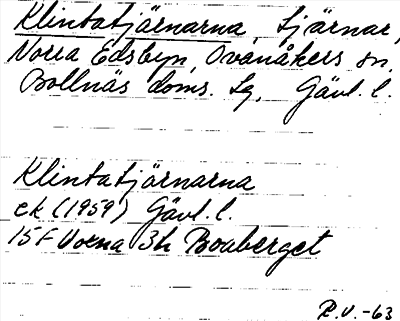 Klintatjärnarna, tjärnar,
Norra Edsbyn, Ovanåkers sn,
Bollnäs doms. sg, Gävl. l.
Klintatjärnarna
ek (1959) Gävl. l.
15F Voxna 3h Boaberget
R.V.-63